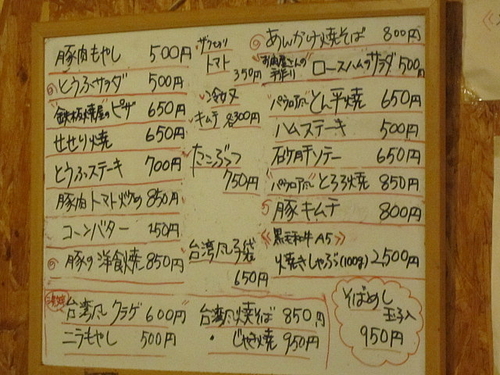 豚肉もやし 500円
とうふサラダ 500円
鉄板焼屋のピザ 650円
せせり焼 650円
とうふステーキ 700円
豚肉トマト炒め 850円
コーンバター 450円
豚の洋食焼 850円
台湾風クラゲ 600円
ニラもやし 500円
トマト
350円
冷奴
キムチ 各300円
たこぶつ
750円
台湾風子袋
650円
台湾風焼そば 850円
じゃが焼 950円
あんかけ焼そば 800円
お肉屋さんの手作り ロースハムのサラダ 500円
とん平焼 650円
ハムステーキ 500円
砂肝ソテー 650円
とろろ焼 850円
豚キムチ 800円
《黒毛和牛A5》
焼きしゃぶ(100g) 2,500円
そばめし
玉子入
950円